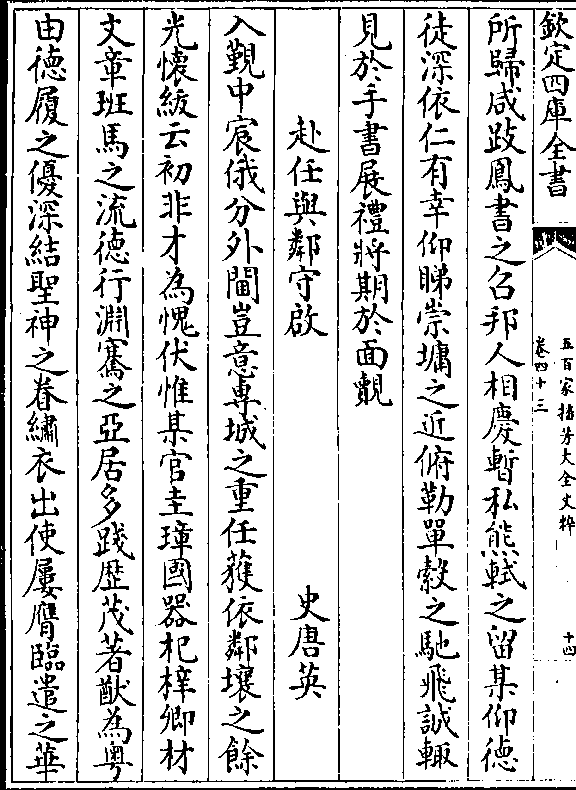 欽定四庫全書
五百家播芳大全文粹
卷四十三
十四
所歸咸跂鳳書之召邦人相慶暫私熊軾之留某仰德
徒深依仁有幸仰睇崇墉之近俯勤單縠之馳飛誠輙
見於手書展禮將期於面覿
赴任與鄰守啟
史唐英
入覲中宸俄分外閫豈意專城之重任獲依鄰壤之餘
光懷紱云初非才為愧伏惟某官圭璋國器杞梓卿材
文章班馬之流德行淵騫之亞居多踐歴茂著猷為粤
由德履之優深結聖神之眷繡衣出使屢膺臨遣之華